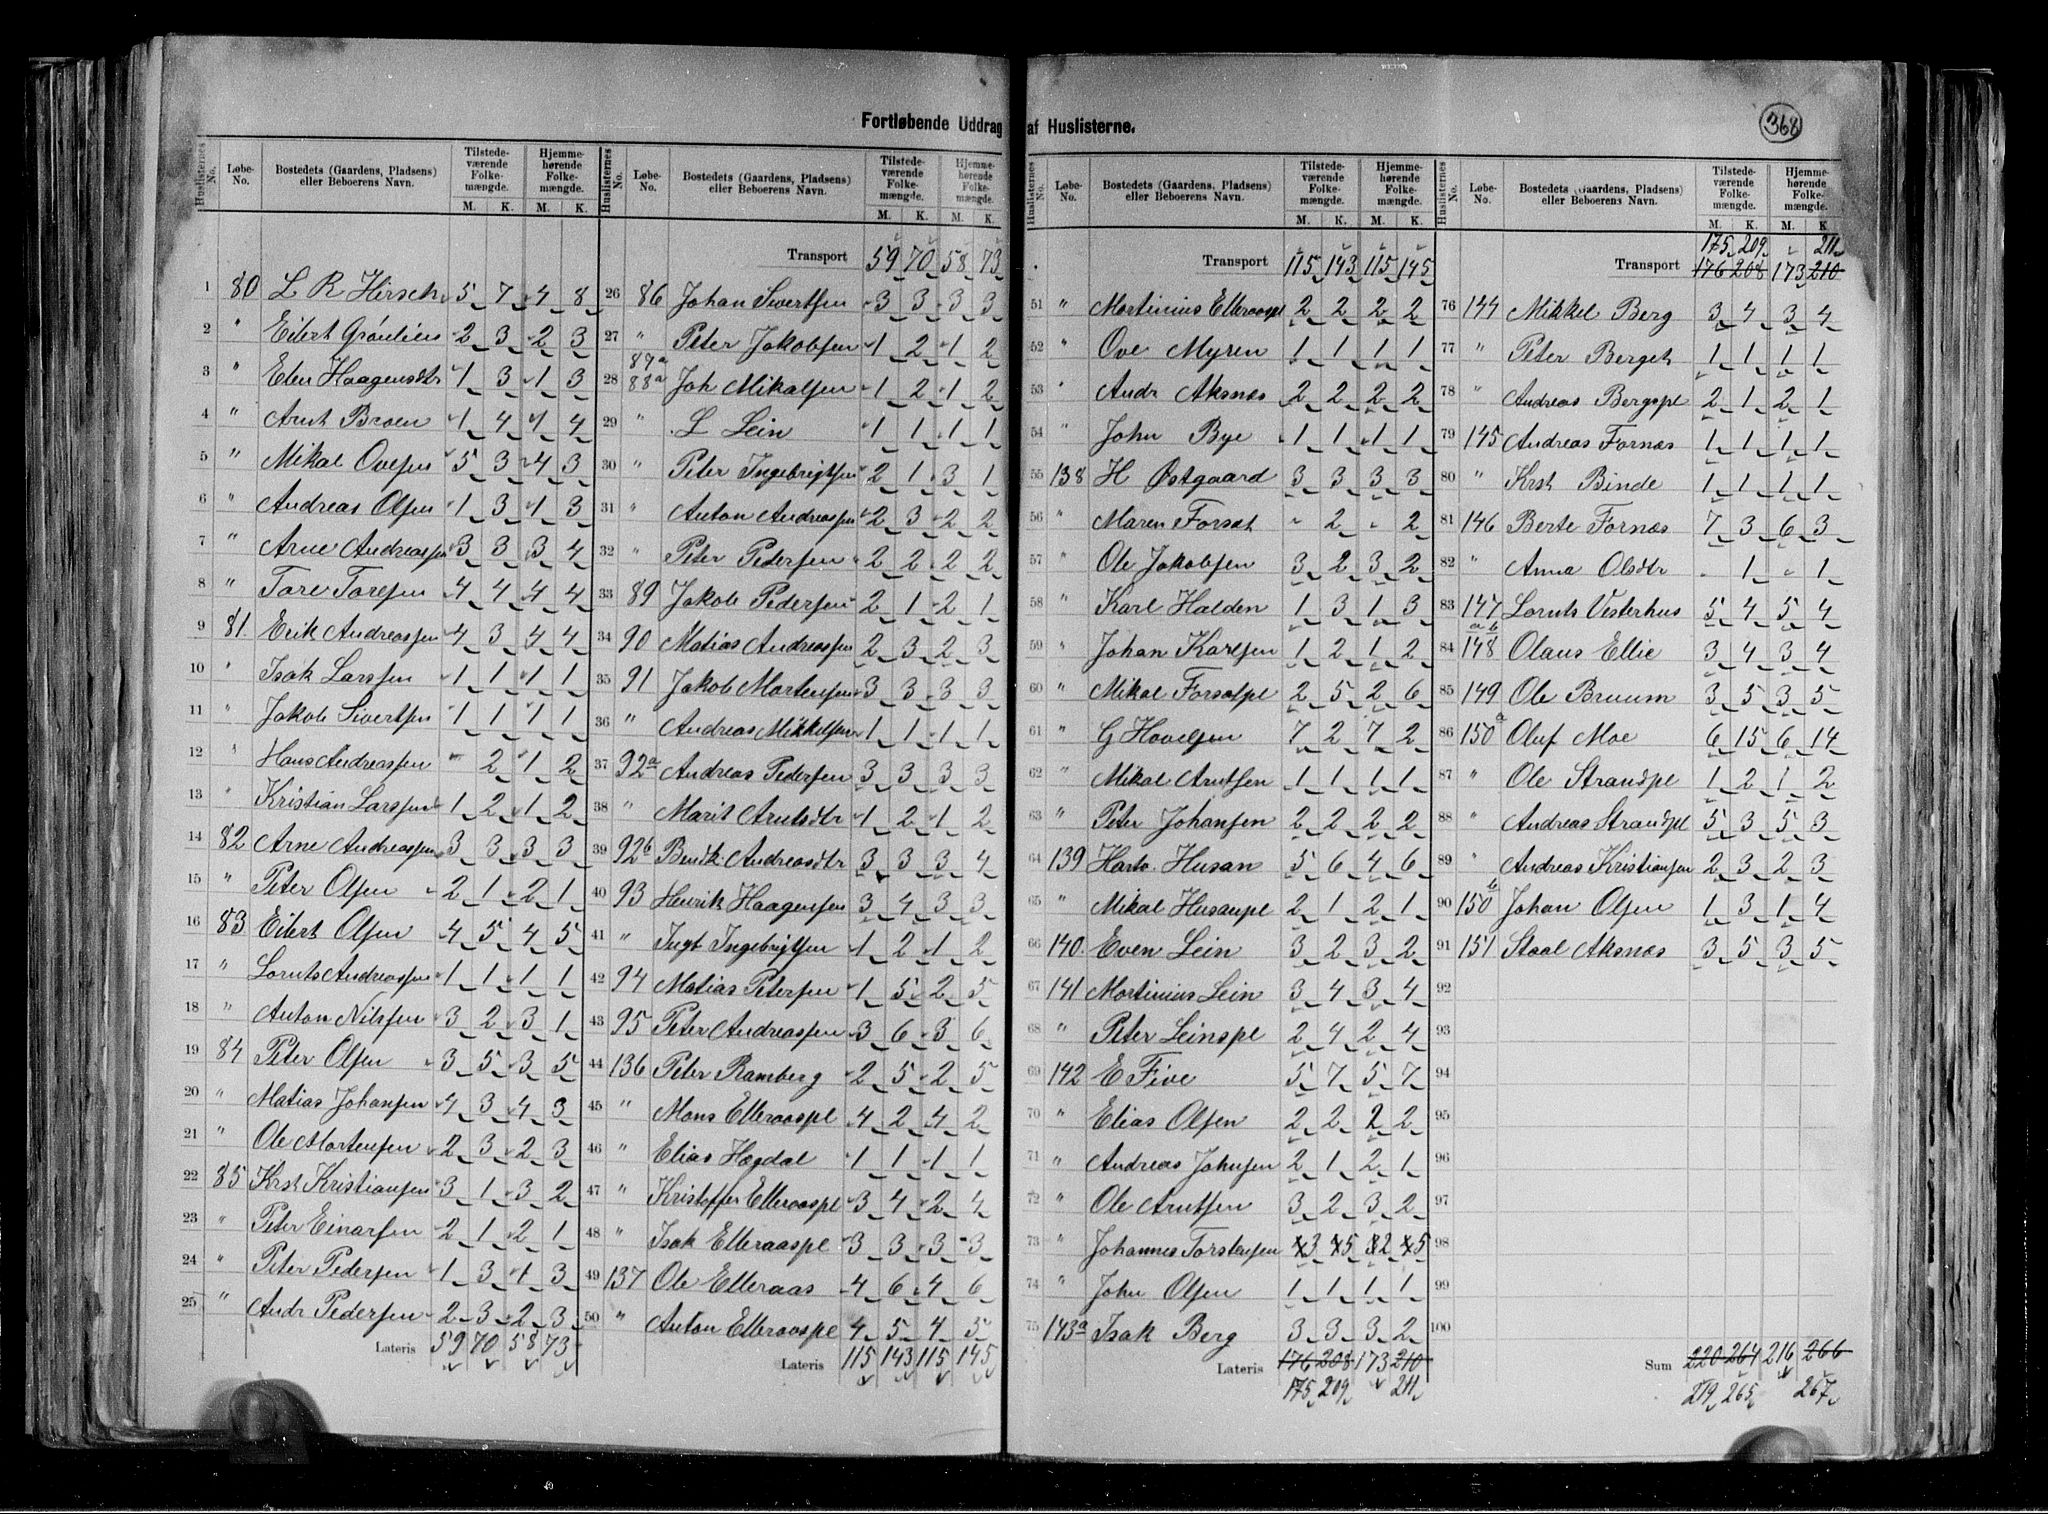 368
Fortløbende Uddrag af Huslisterne.
Huslisternes No. | Løbe-No. | Bostedets (Gaardens, Pladsens) eller Beboerens Navn. | Tilstedeværende Folkemængde. M. K. | Hjemmehørende Folkemængde. M. K.
1 80 L R Hirsch 5 7 4 8
2 " Eilert Grönlien 2 3 2 3
3 " Elen Haagensdtr 1 3 1 3
4 " Arnt Broen 1 4 1 4
5 " Mikal Ovesen 5 3 4 3
6 " Andreas Olsen 1 3 1 3
7 " Arne Andreassen 3 3 3 4
8 " Tore Toresen 4 4 4 4
9 81. Erik Andreassen 4 3 4 4
10 " Isak Larssen 1 1 1 1
11 " Jakob Sivertsen 1 1 1 1
12 " Hans Andreassen " 2 1 2
13 " Kristian Larssen 1 2 1 2
14 82 Arne Andreassen 3 3 3 3
15 " Peter Olsen 2 1 2 1
16 83 Eilert Olsen 4 5 4 5
17 " Lornts Andreassen 1 1 1 1
18 " Anton Nilssen 3 2 3 1
19 84 Peter Olsen 3 5 3 5
20 " Matias Johansen 4 3 4 3
21 " Ole Mortensen 2 3 2 3
22 85 Krst Kristiansen 3 1 3 2
23 " Peter Einarsen 2 1 2 1
24 " Peter Pedersen 1 3 1 3
25 " Andr Pedersen 2 3 2 3
Lateris 59 70 58 73
Huslisternes No. | Løbe-No. | Bostedets (Gaardens, Pladsens) eller Beboerens Navn. | Tilstedeværende Folkemængde. M. K. | Hjemmehørende Folkemængde. M. K.
Transport 59 70 58 73
26 86 Johan Sivertsen 3 3 3 3
27 " Peter Jakobsen 1 2 1 2
87a
28 88a Joh Mikalsen 1 2 1 2
29 " L Lein 1 1 1 1
30 " Peter Ingebrigtsen 2 1 3 1
31 " Anton Andreassen 2 3 2 2
32 " Peter Pedersen 2 2 2 2
33 89 Jakob Pedersen 2 1 2 1
34 90 Matias Andreassen 2 3 2 3
35 91 Jakob Mortensen 3 3 3 3
36 " Andreas Mikkelsen 1 1 1 1
37 92a Andreas Pedersen 3 3 3 3
38 " Marit Arntsdtr 1 2 1 2
39 92b Bendk. Andreasdtr 3 3 3 4
40 93 Henrik Haagensen 3 4 3 3
41 " Ingt Ingebrigtsen 1 2 1 2
42 94 Matias Petersen 1 5 2 5
43 95 Peter Andreassen 3 6 3 6
44 136 Peter Ramberg 2 5 2 5
45 " Mons Elleraaspl 4 2 4 2
46 " Elias Hegdal 1 1 1 1
47 " Kristoffer Elleraaspl 3 4 2 4
48 " Isak Elleraaspl 3 3 3 3
49 137 Ole Elleraas 4 6 4 6
50 " Anton Elleraaspl 4 5 4 5
Lateris 115 143 115 145
Huslisternes No. | Løbe-No. | Bostedets (Gaardens, Pladsens) eller Beboerens Navn. | Tilstedeværende Folkemængde. M. K. | Hjemmehørende Folkemængde. M. K.
Transport 115 143 115 145
51 " Mortinius Elleraaspl 2 2 2 2
52 " Ove Myren 1 1 1 1
53 " Andr Aksnæs 2 2 2 2
54 " John Bye 1 1 1 1
55 138 H Østgaard 3 3 3 3
56 " Maren Forsæt " 2 " 2
57 " Ole Jakobsen 3 2 3 2
58 " Karl Halden 1 3 1 3
59 " Johan Karlsen 1 2 1 2
60 " Mikal Forsætpl 2 5 2 6
61 " G Hovelsen 7 2 7 2
62 " Mikal Arntsen 1 1 1 1
63 " Peter Johansen 2 2 2 2
64 139 Harto. Husan 5 6 4 6
65 " Mikal Husanpl 2 1 2 1
66 140. Even Lein 3 2 3 2
67 141 Mortinius Lein 3 4 3 4
68 " Peter Leinspl 2 4 2 4
69 142 E Five 5 7 5 7
70 " Elias Olsen 2 2 2 2
71 " Andreas Johnsen 2 1 2 1
72 " Ole Arntsen 3 2 3 2
73 " Johannes Torstensen 4 3 4 5 3 2 4 5
74 " John Olsen 1 1 1 1
75 143a Isak Berg 3 3 3 2
Lateris 176 208 173 210
175 209 211
Huslisternes No. | Løbe-No. | Bostedets (Gaardens, Pladsens) eller Beboerens Navn. | Tilstedeværende Folkemængde. M. K. | Hjemmehørende Folkemængde. M. K
175 209 " 211
Transport 176 208 173 210
76 144 Mikkel Berg 3 4 3 4
77 " Peter Berget 1 1 1 1
78 " Andreas Bergspl 2 1 2 1
79 145 Andreas Fornæs 1 1 1 1
80 " Krst Binde 1 1 1 1
81 146 Berte Fornæs 7 3 6 3
82 " Anna Olsdtr " 1 " 1
83 147 Lornts Vesterhus 5 4 5 4
a b
84 148 Olaus Ellie 3 4 3 4
85 149 Ole Bruum 3 5 3 5
86 150a Oluf Moe 6 15 6 14
87 " Ole Strandpl 1 2 1 2
88 " Andreas Strandpl 5 3 5 3
89 " Andreas Kristiansen 2 3 2 3
90 150b Johan Olsen 1 3 1 4
91 151 Staal Aksnæs 3 5 3 5
92
93
94
95
96
97
98
99
100
Sum 220 264 216 266
219 265 267